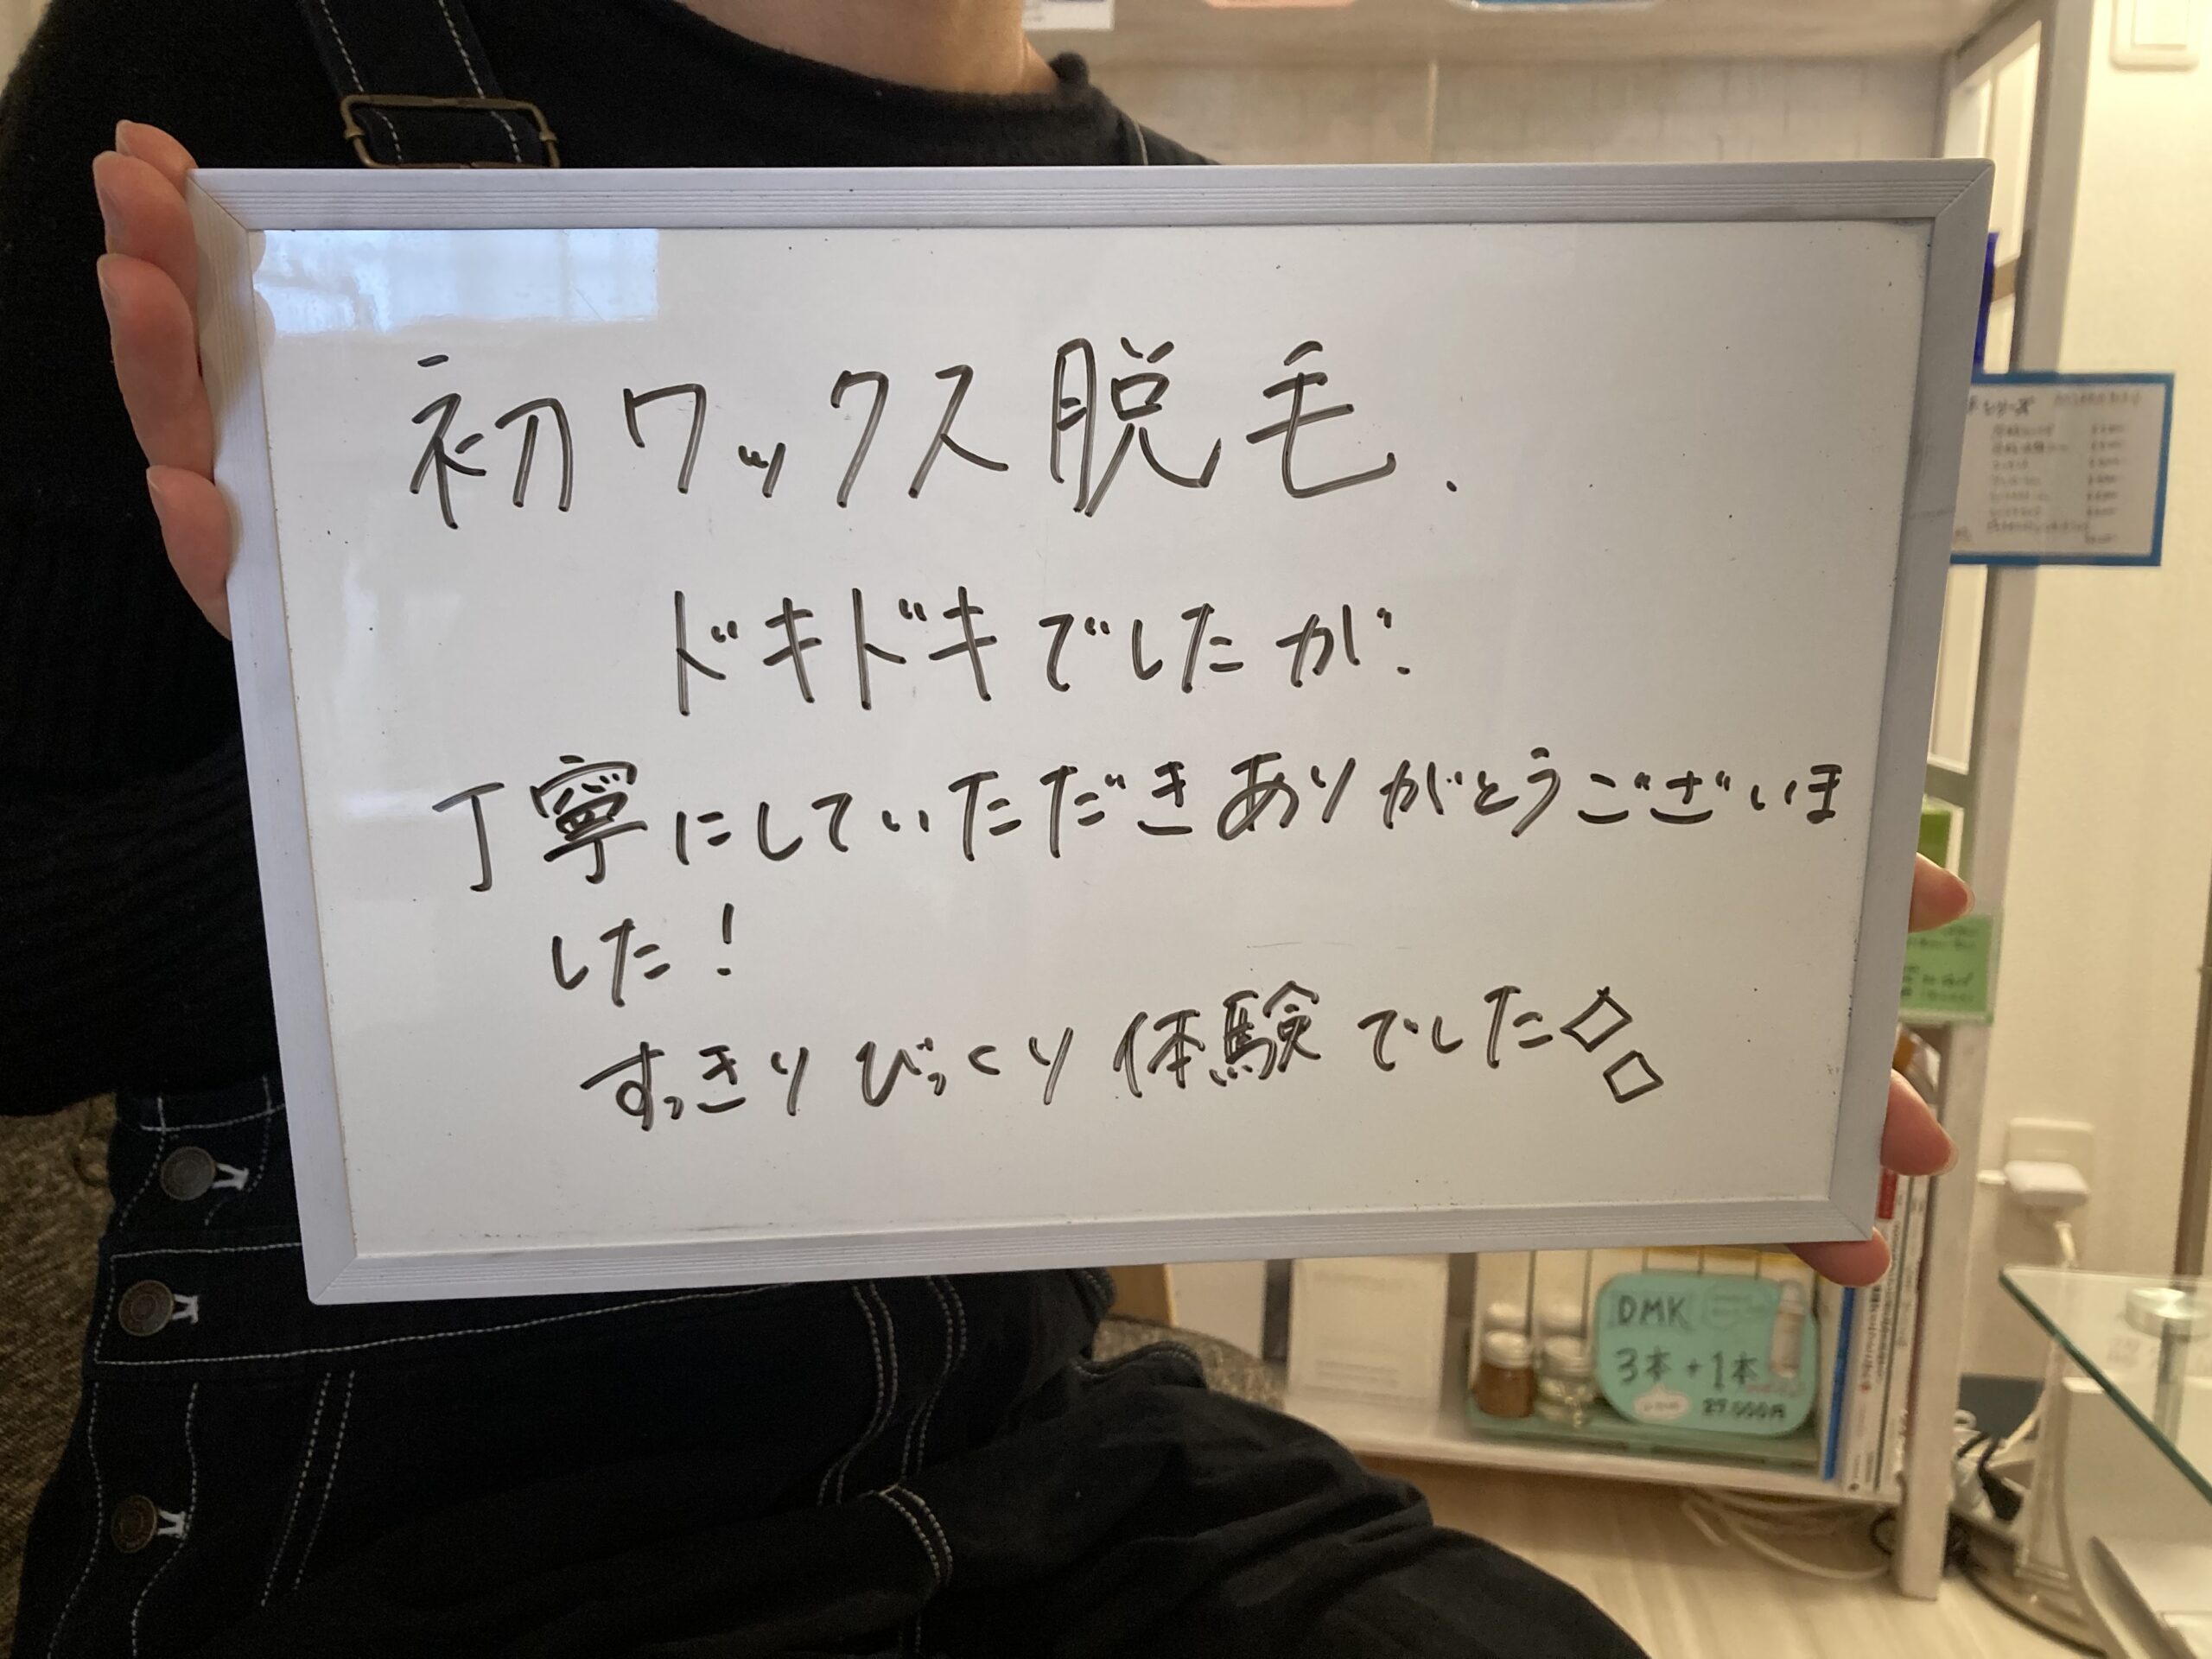 初ワックス脱毛.
ドキドキでしたが.
丁寧にしていただきありがとうございま
した！
すっきりびっくり体験でした◇◇
シリーズ
DMK
3本+1本
27.000円